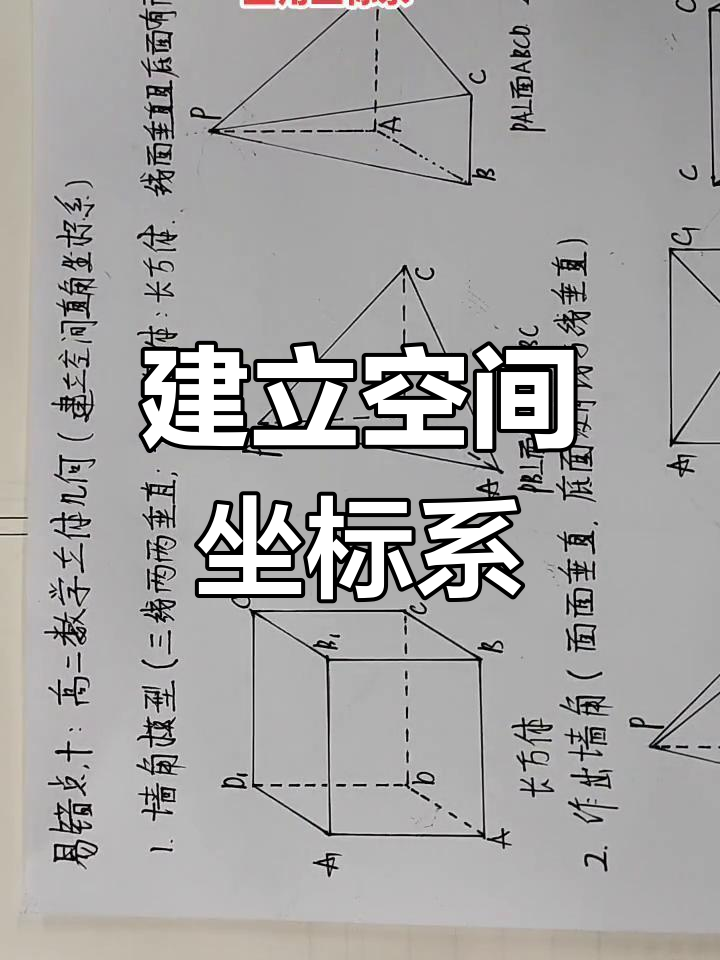 建立空间
坐标系
易错点十：高二数学立体几何（建立空间直角坐标系）
1. 墙角模型（三线两两垂直；
体：长方体.
线面垂直且底面有
D₁
C
B₁
A₁
D
B
A
长方体
C
A
PB⊥面
BC
P
A
C
B
PA⊥面ABCD.
2. 作出墙角（面面垂直.底面
线垂直）
P
A₁
C₁
C